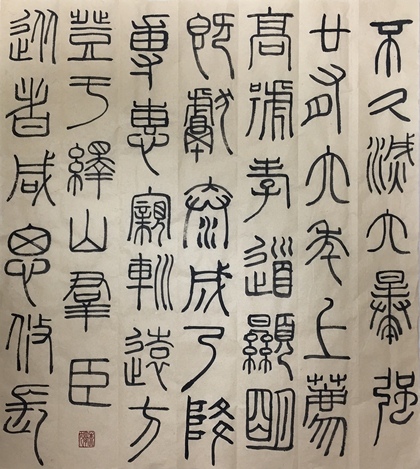 不久滅六暴強
廿有六年上薦
高號孝道顯明
既獻泰成乃降
專惠寴軜遠方
登于繹山羣臣
從者咸思攸長